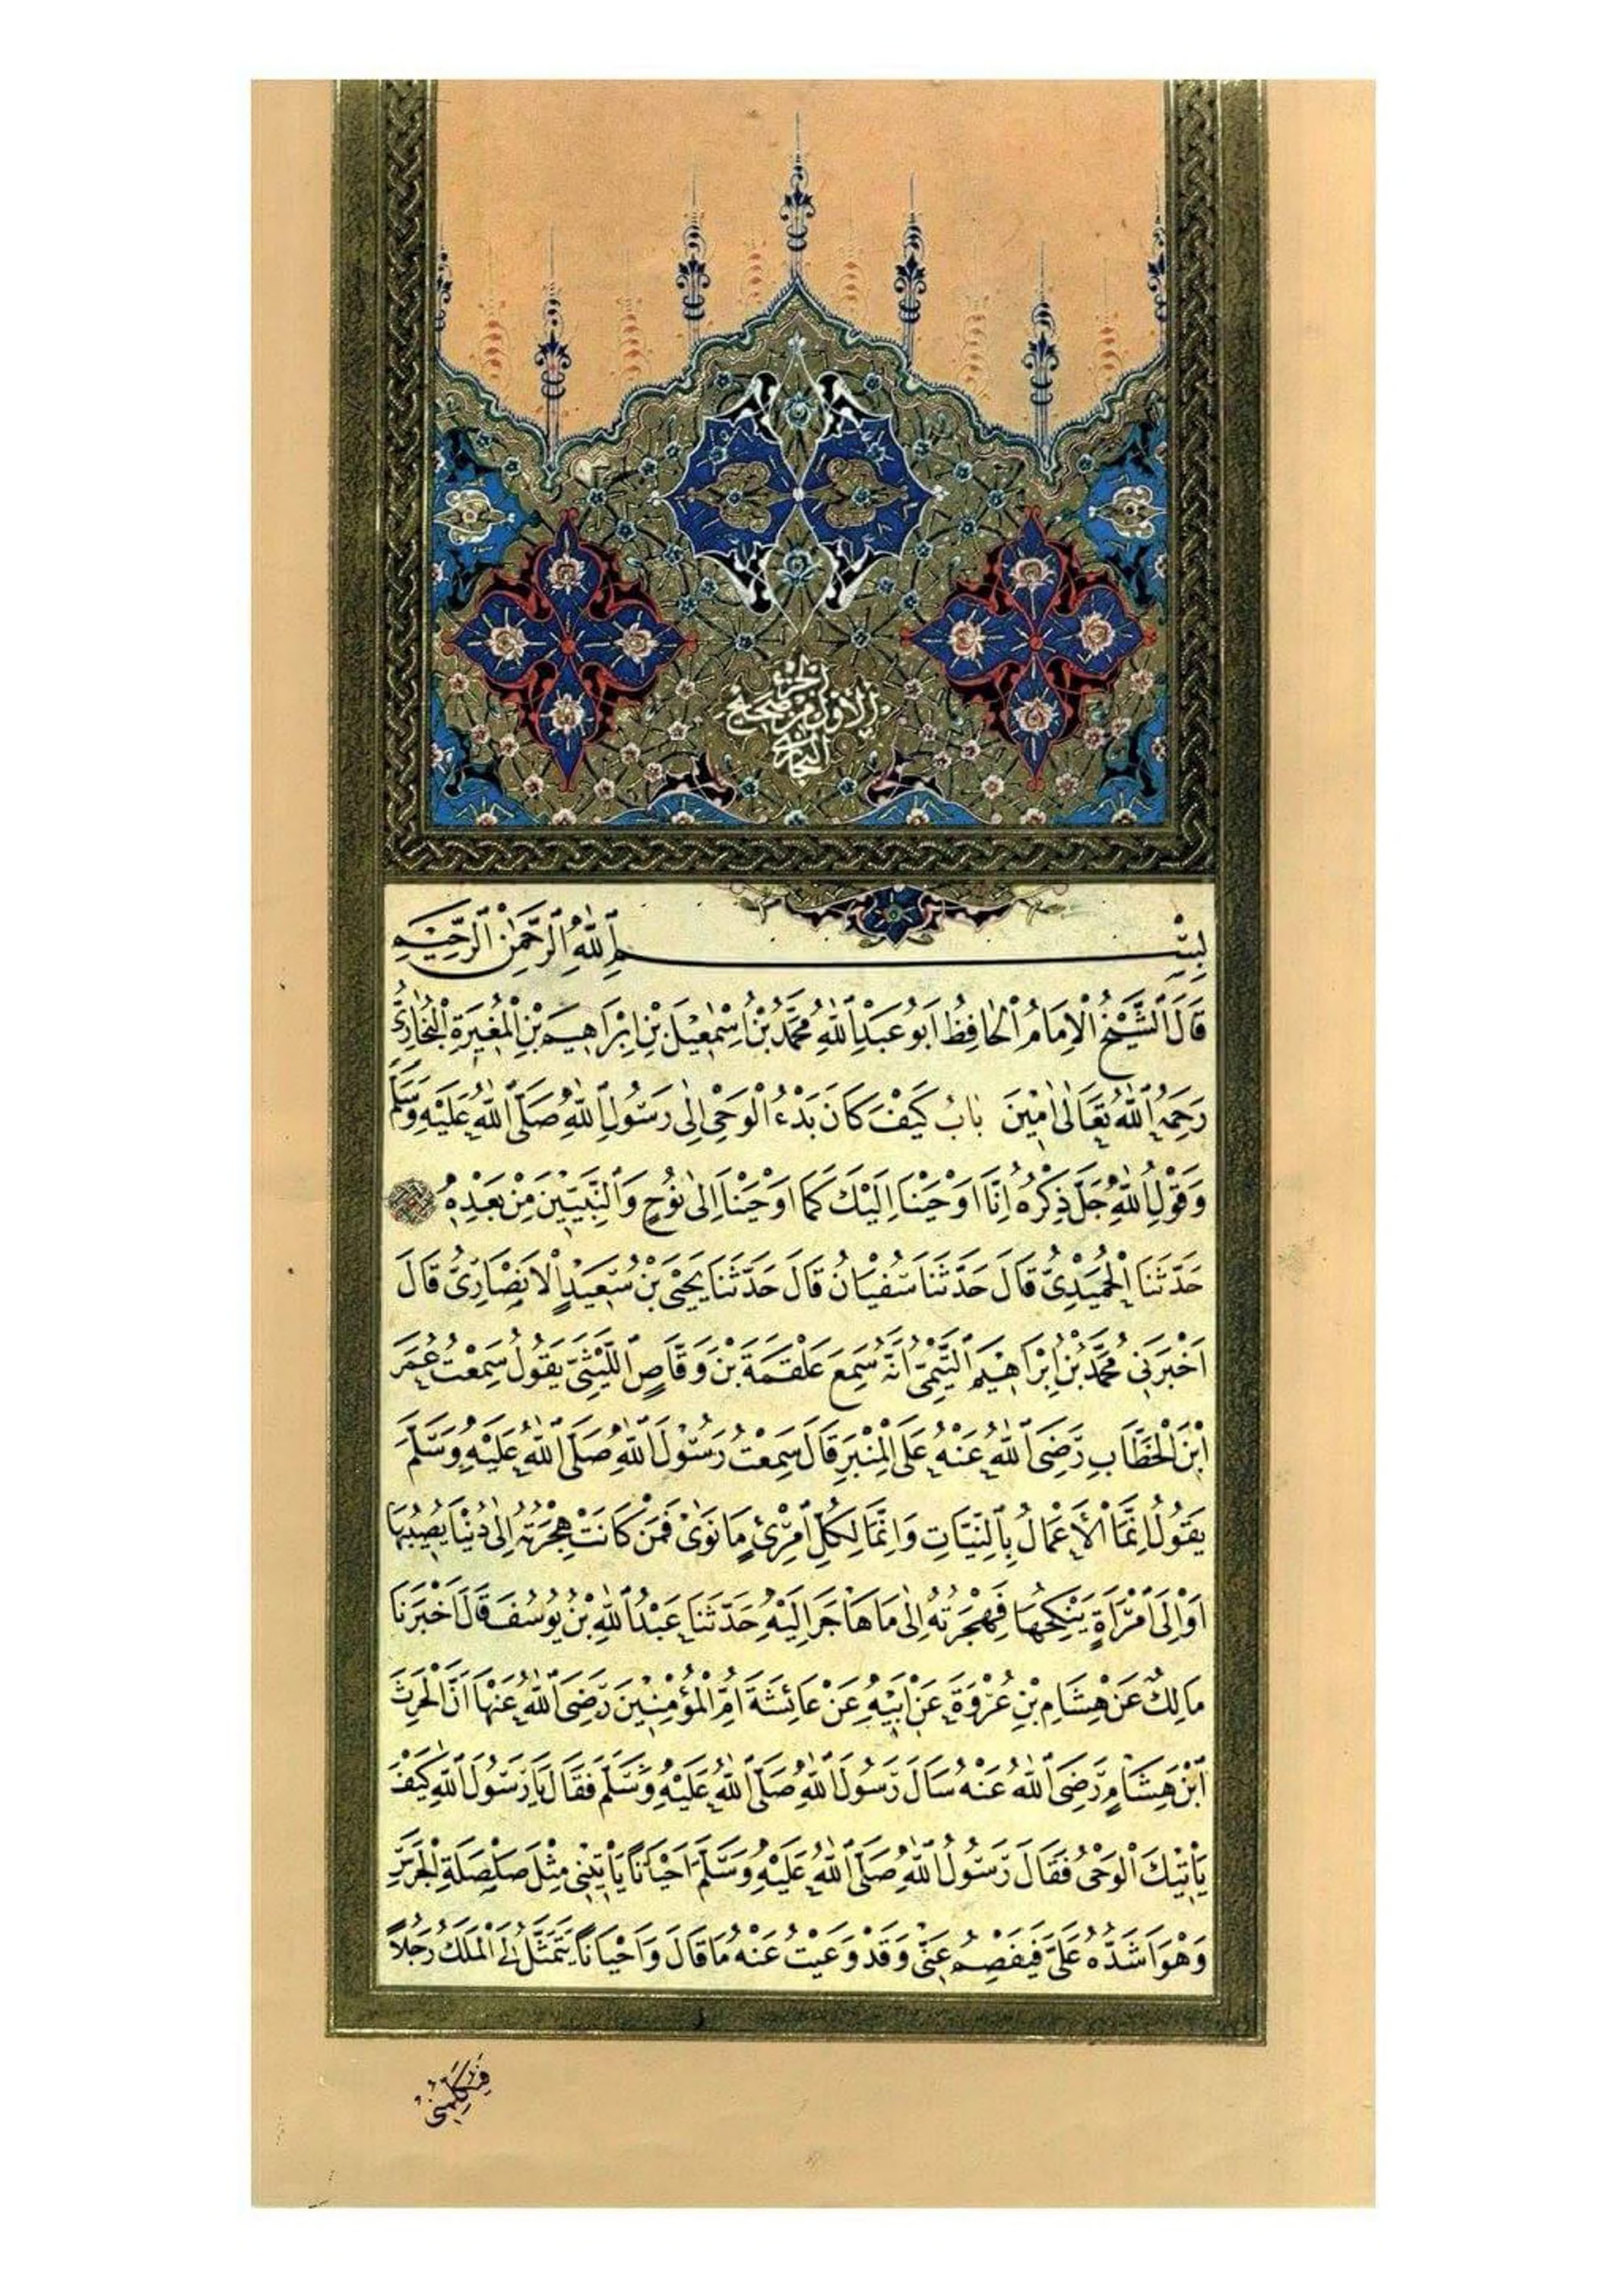 الجزء
الأول من صحيح
البخاري
بِسْمِ اللّٰهِ الرَّحْمٰنِ الرَّحِيمِ
قَالَ الشَّيْخُ الْاِمَامُ الْحَافِظُ اَبُو عَبْدِ اللّٰهِ مُحَمَّدُ بْنُ اِسْمٰعِيلَ بْنِ اِبْرَاهِيمَ بْنِ الْمُغِيرَةِ الْبُخَارِىُّ
رَحِمَهُ اللّٰهُ تَعَالٰى اٰمِينَ بَابُ كَيْفَ كَانَ بَدْءُ الْوَحْىِ اِلٰى رَسُولِ اللّٰهِ صَلَّى اللّٰهُ عَلَيْهِ وَسَلَّمَ
وَقَوْلِ اللّٰهِ جَلَّ ذِكْرُهُ اِنَّا اَوْحَيْنَا اِلَيْكَ كَمَا اَوْحَيْنَا اِلٰى نُوحٍ وَالنَّبِيِّينَ مِنْ بَعْدِهِ
حَدَّثَنَا الْحُمَيْدِىُّ قَالَ حَدَّثَنَا سُفْيَانُ قَالَ حَدَّثَنَا يَحْيَى بْنُ سَعِيدٍ الْاَنْصَارِىُّ قَالَ
اَخْبَرَنِى مُحَمَّدُ بْنُ اِبْرَاهِيمَ التَّيْمِىُّ اَنَّهُ سَمِعَ عَلْقَمَةَ بْنَ وَقَّاصٍ اللَّيْثِىَّ يَقُولُ سَمِعْتُ عُمَرَ
ابْنَ الْخَطَّابِ رَضِىَ اللّٰهُ عَنْهُ عَلَى الْمِنْبَرِ قَالَ سَمِعْتُ رَسُولَ اللّٰهِ صَلَّى اللّٰهُ عَلَيْهِ وَسَلَّمَ
يَقُولُ اِنَّمَا الْأَعْمَالُ بِالنِّيَّاتِ وَاِنَّمَا لِكُلِّ امْرِئٍ مَا نَوٰى فَمَنْ كَانَتْ هِجْرَتُهُ اِلٰى دُنْيَا يُصِيبُهَا
اَوْ اِلَى امْرَاَةٍ يَنْكِحُهَا فَهِجْرَتُهُ اِلٰى مَا هَاجَرَ اِلَيْهِ حَدَّثَنَا عَبْدُ اللّٰهِ بْنُ يُوسُفَ قَالَ اَخْبَرَنَا
مَالِكٌ عَنْ هِشَامِ بْنِ عُرْوَةَ عَنْ اَبِيهِ عَنْ عَائِشَةَ اُمِّ الْمُؤْمِنِينَ رَضِىَ اللّٰهُ عَنْهَا اَنَّ الْحٰرِثَ
ابْنَ هِشَامٍ رَضِىَ اللّٰهُ عَنْهُ سَاَلَ رَسُولَ اللّٰهِ صَلَّى اللّٰهُ عَلَيْهِ وَسَلَّمَ فَقَالَ يَا رَسُولَ اللّٰهِ كَيْفَ
يَاْتِيكَ الْوَحْىُ فَقَالَ رَسُولُ اللّٰهِ صَلَّى اللّٰهُ عَلَيْهِ وَسَلَّمَ اَحْيَانًا يَاْتِينِى مِثْلَ صَلْصَلَةِ الْجَرَسِ
وَهُوَ اَشَدُّهُ عَلَىَّ فَيُفْصَمُ عَنِّى وَقَدْ وَعَيْتُ عَنْهُ مَا قَالَ وَاَحْيَانًا يَتَمَثَّلُ لِىَ الْمَلَكُ رَجُلًا
فَيُكَلِّمُنِى